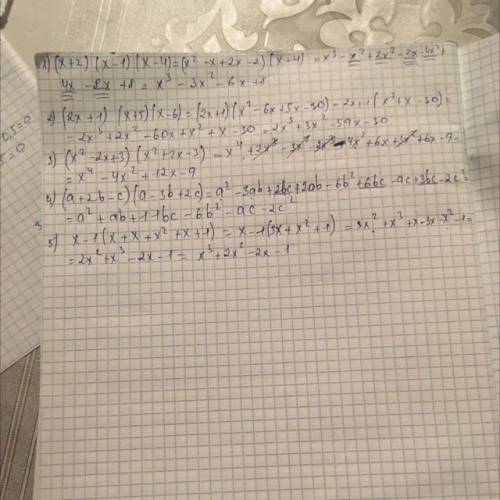 1) (x+2)(x-1)(x-4)=(x²-x+2x-2)(x-4)=x³-x²+2x²-2x-4x²+
4x-8x+8=x³-3x²-6x+8
2) (2x+1)(x+5)(x-6)=(2x+1)(x²-6x+5x-30)=2x+1(x²+x-30)=
=2x³+2x²-60x+x²+x-30=2x³+3x²-59x-30
3) (x²-2x+3)(x²+2x-3)=x⁴+2x³-3x²-2x³-4x²+6x+3x²+6x-9=
=x⁴-4x²+12x-9
4) (a+2b-c)(a-3b+2c)=a²-3ab+2bc+2ab-6b²+6bc-ac+3bc-2c²
=a²+ab+11bc-6b²-ac-2c²
5) x-1(x+x+x²+x+1)=x-1(3x+x²+1)=3x²+x³+x-3x-x²-1=
=2x²+x³-2x-1=x³+2x²-2x-1
0,5=0
=0